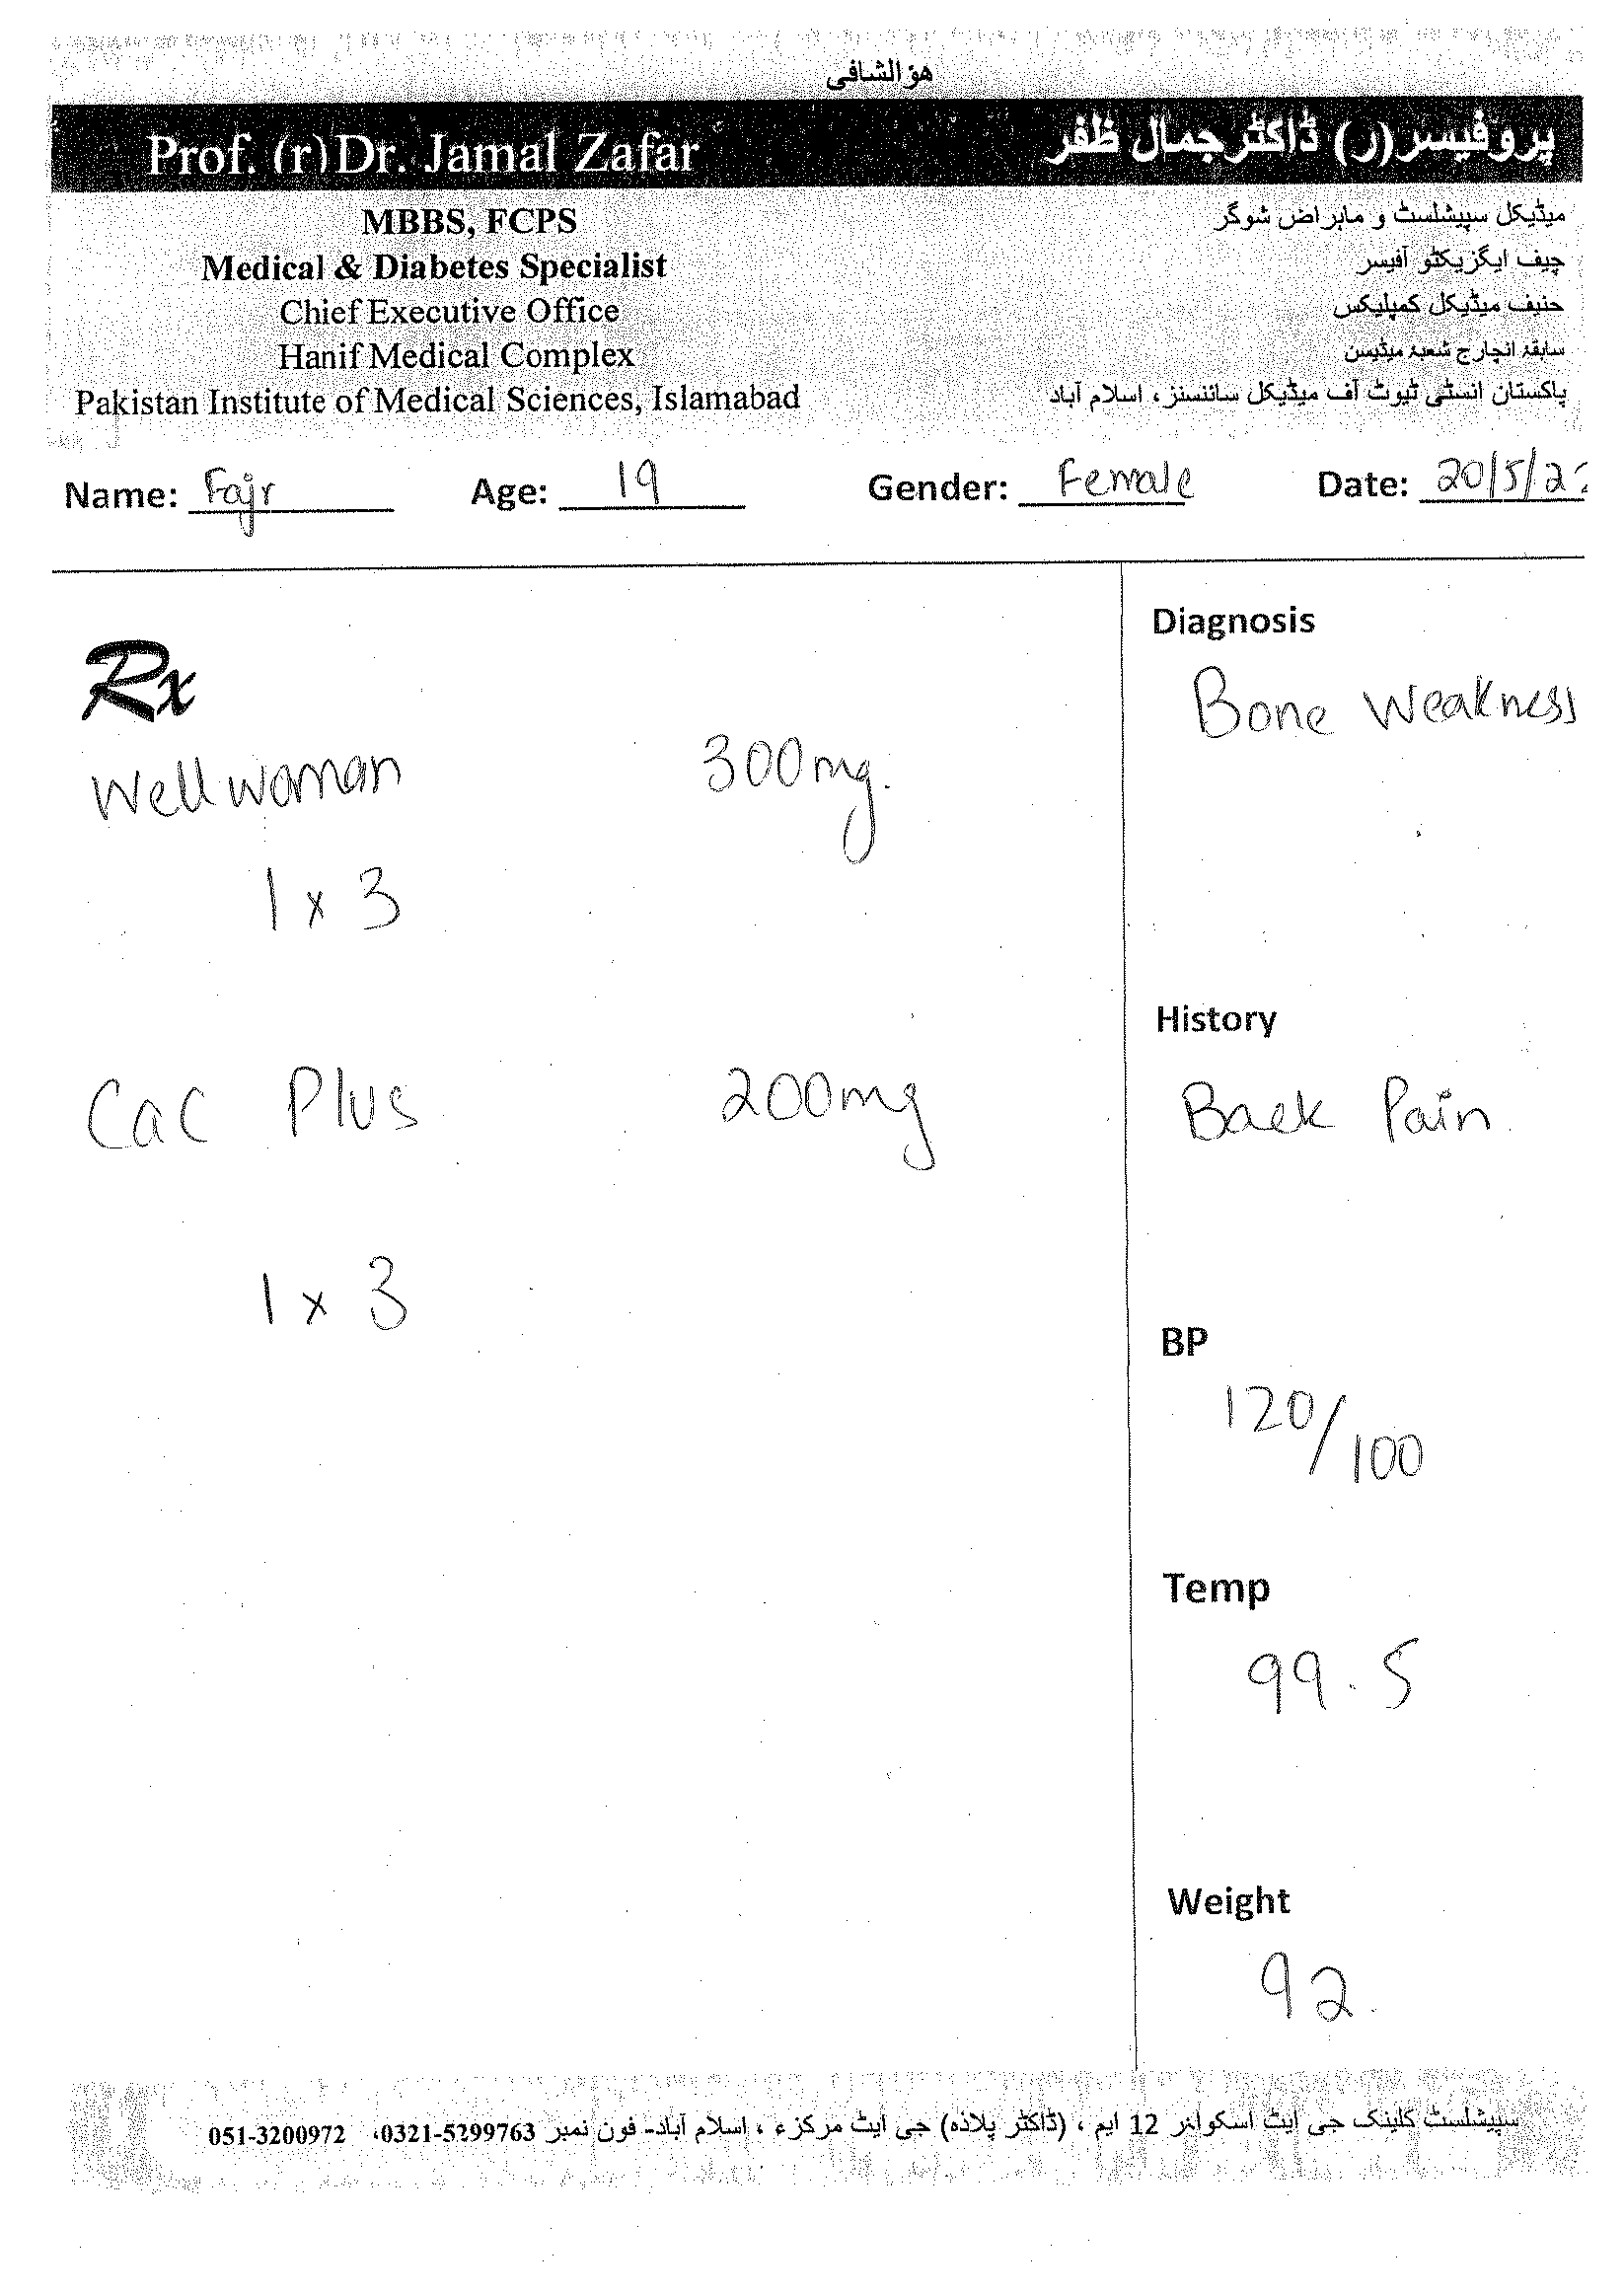 هو الشافی
Prof. (r) Dr. Jamal Zafar
پروفیسر (ر) ڈاکٹر جمال ظفر
MBBS, FCPS
Medical & Diabetes Specialist
Chief Executive Office
Hanif Medical Complex
Pakistan Institute of Medical Sciences, Islamabad
میڈیکل سپیشلسٹ و ماہر امراض شوگر
چیف ایگزیکٹو آفیسر
حنیف میڈیکل کمپلیکس
سابقہ انچارج شعبہ میڈیسن
پاکستان انسٹی ٹیوٹ آف میڈیکل سائنسز، اسلام آباد
Name: Fajr Age: 19 Gender: Female Date: 20/5/22
Rx
Wellwoman 300mg.
1 x 3
Cac Plus 200mg
1 x 3
Diagnosis
Bone Weakness
History
Back Pain
BP
120/100
Temp
99.5
Weight
92
سپیشلسٹ کلینک جی ایٹ اسکوائر 12 ایم ، (ڈاکٹر پلازہ) جی ایٹ مرکزء ، اسلام آباد- فون نمبر 0321-5299763، 051-3200972